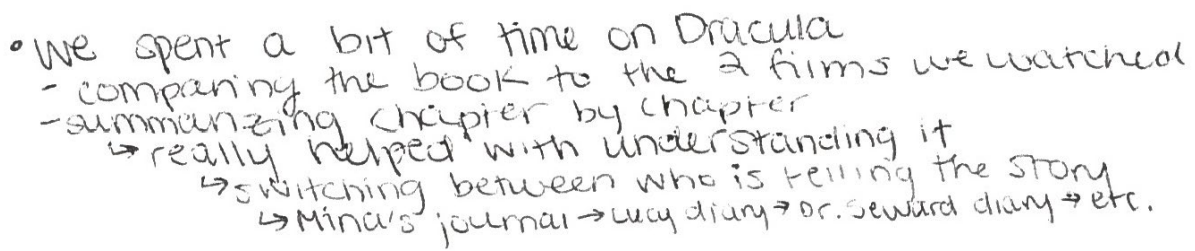 • We spent a bit of time on Dracula
- comparing the book to the 2 films we watched
- summarizing chapter by chapter
↳ really helped with understanding it
↳ switching between who is telling the story
↳ Mina's journal → Lucy diary → Dr. Seward diary → etc.